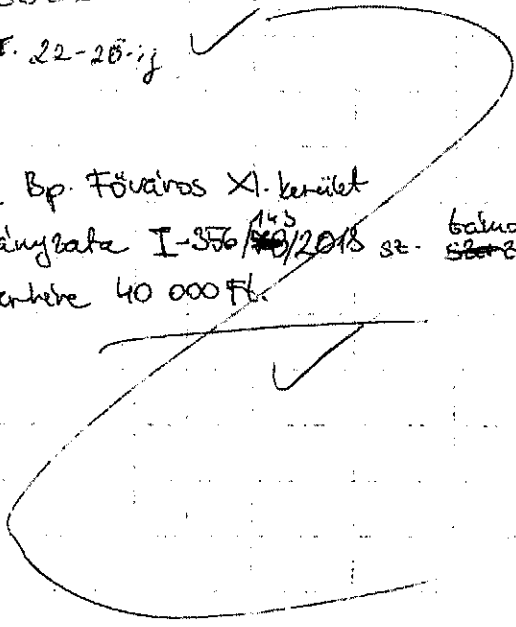 22-26-ig
Bp. Főváros XI. kerület
ányzata I-356/143/2018 sz.
terhére 40 000 Ft.